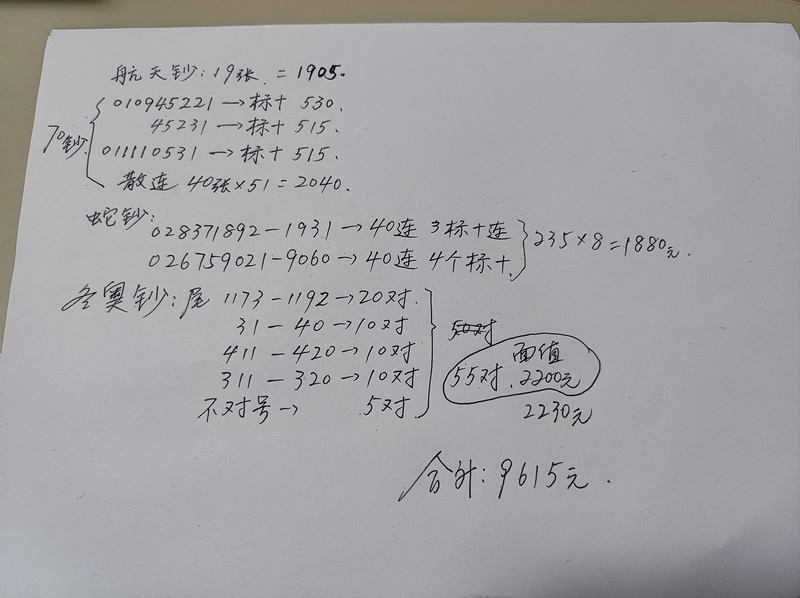 航天钞：19张 = 1905.
70钞
010945221 → 标十 530.
45231 → 标十 515.
011110531 → 标十 515.
散连 40张×51 = 2040.
蛇钞：
028371892-1931 → 40连 3标十连
026759021-9060 → 40连 4个标十.
235×8=1880元.
冬奥钞：尾 1173-1192 → 20对.
31-40 → 10对
411-420 → 10对
311-320 → 10对
不对号 → 5对
50对
面值
55对. 2200元
2230元
合计：9615元.